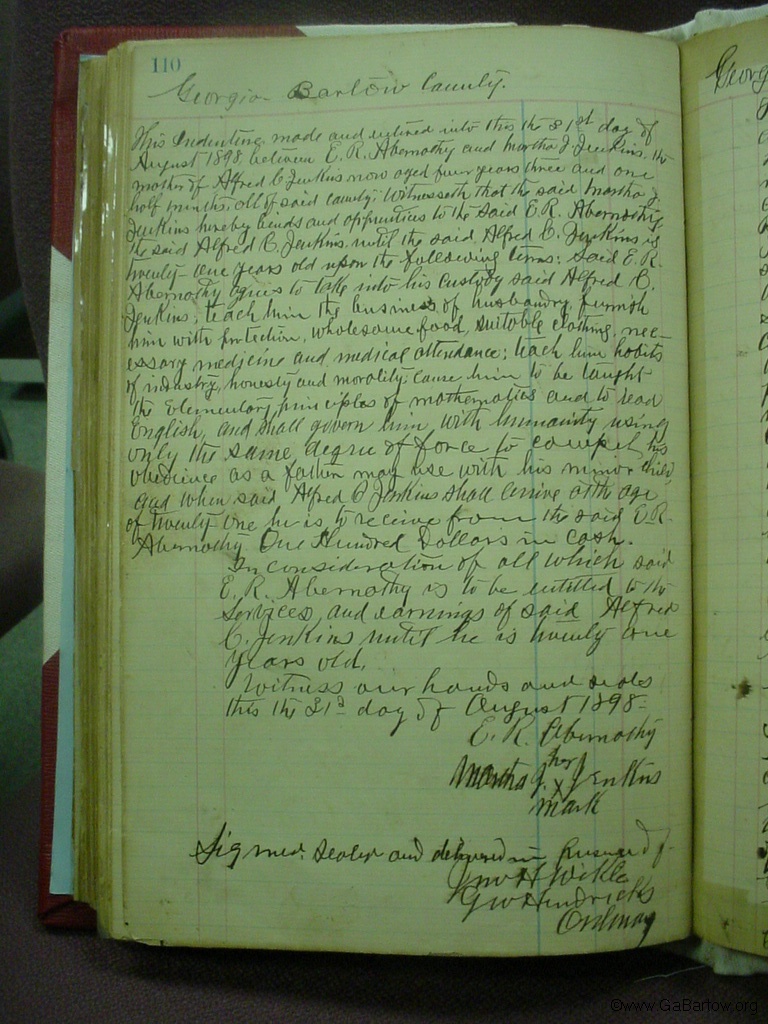 110
Georgia Bartow County.
This Indenture made and entered into this the 31st day of
August 1898, between E. R. Abernathy and Martha J. Jenkins, the
mother of Alfred C. Jenkins now aged four years three and one
half months, all of said county; Witnesseth that the said Martha J.
Jenkins hereby binds and apprentices to the said E. R. Abernathy,
the said Alfred C. Jenkins, until the said Alfred C. Jenkins is
twenty-one years old upon the following terms: Said E. R.
Abernathy agrees to take into his custody said Alfred C.
Jenkins; teach him the business of husbandry, furnish
him with protection, wholesome food, suitable clothing, nec-
essary medicine and medical attendance; teach him habits
of industry, honesty and morality; cause him to be taught
the Elementary principles of mathematics and to read
English, and shall govern him with humanity using
only the same degree of force to compel his
obedience as a father may use with his minor child,
and when said Alfred C Jenkins shall arrive at the age
of twenty one he is to receive from the said E. R.
Abernathy One Hundred Dollars in cash.
In consideration of all which said
E. R. Abernathy is to be entitled to the
services, and earnings of said Alfred
C. Jenkins until he is twenty one
years old.
Witness our hands and seals
this the 31st day of August 1898.
E. R. Abernathy
her
Martha J. x Jenkins
mark
Signed, Sealed and delivered in presence of
Jno H Wikle
G W Hendricks
Ordinary
Georg
©www.GaBartow.org